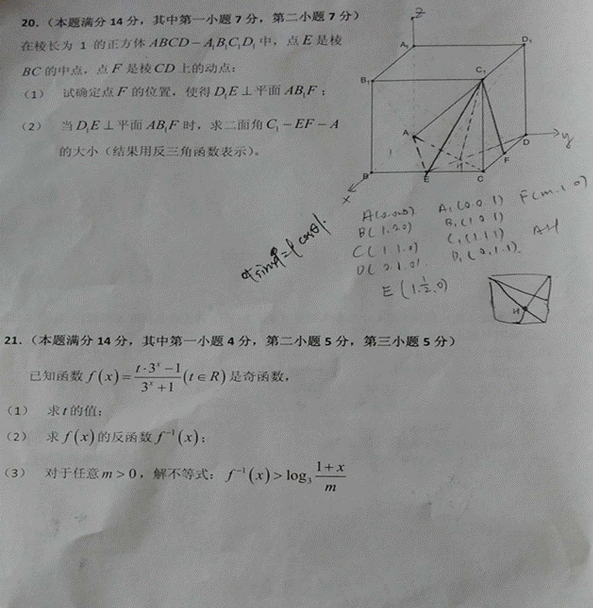 20.（本题满分 14 分，其中第一小题 7 分，第二小题 7 分）
在棱长为 1 的正方体 ABCD－A₁B₁C₁D₁ 中，点 E 是棱
BC 的中点，点 F 是棱 CD 上的动点：
（1） 试确定点 F 的位置，使得 D₁E⊥平面 AB₁F；
（2） 当 D₁E⊥平面 AB₁F 时，求二面角 C₁－EF－A
的大小（结果用反三角函数表示）。
z
A₁
D₁
B₁
C₁
A
D
y
F
B
E
C
x
A(0.0.0) A₁(0.0.1) F(m.1.0)
B(1.0.0) B₁(1.0.1)
C(1.1.0) C₁(1.1.1) AH
D(0.1.0) D₁(0.1.1)
E(1.½.0)
H
21.（本题满分 14 分，其中第一小题 4 分，第二小题 5 分，第三小题 5 分）
已知函数 f(x)=(t·3ˣ－1)/(3ˣ+1)(t∈R) 是奇函数，
（1） 求 t 的值；
（2） 求 f(x) 的反函数 f⁻¹(x)；
（3） 对于任意 m>0，解不等式：f⁻¹(x)>log₃ (1+x)/m